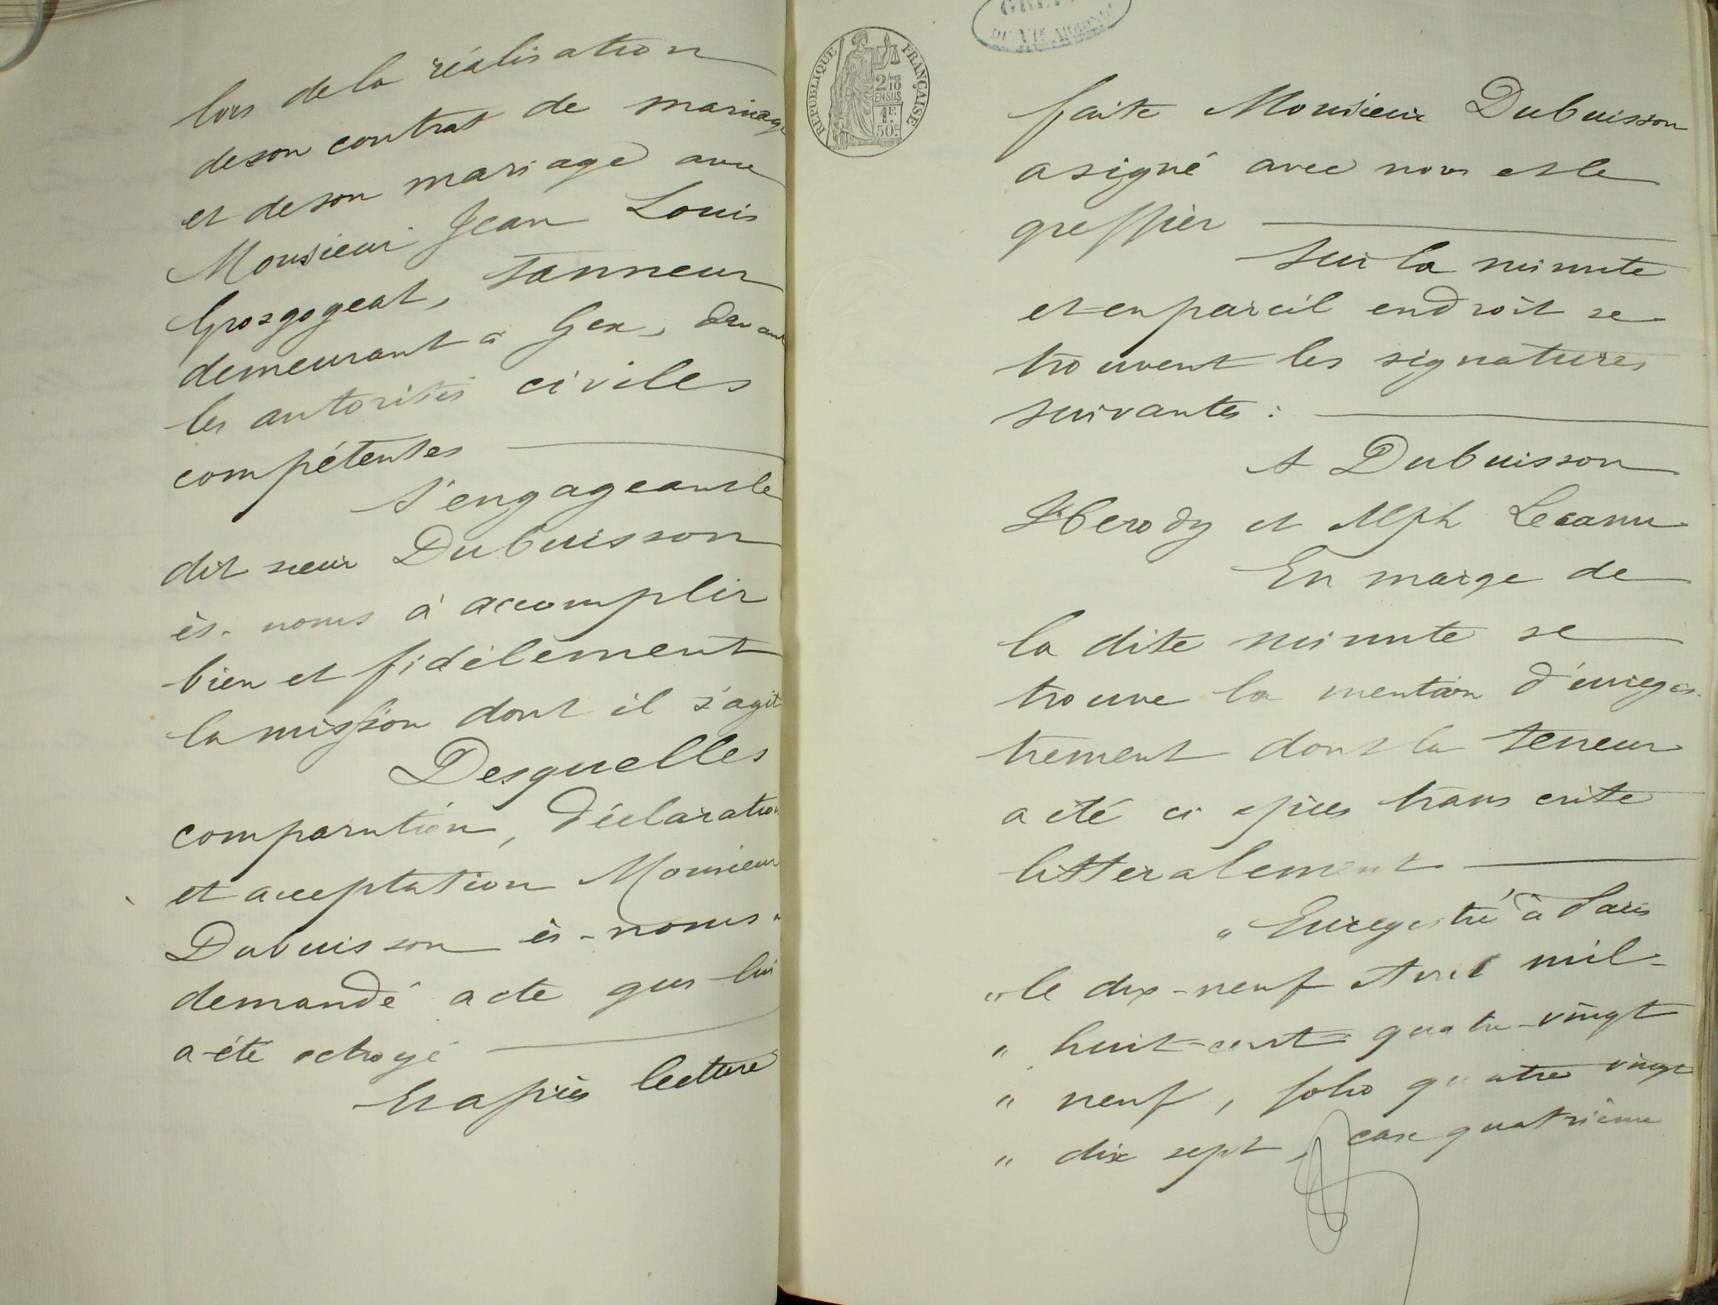 lors de la réalisation
de son contrat de mariage
et de son mariage avec
Monsieur Jean Louis
Grosgogeat, tanneur
demeurant à Gex, devant
les autorités civiles
compétentes
S'engageant le
dit sieur Dubuisson
ès-noms à accomplir
bien et fidèlement
la mission dont il s'agit
Desquelles
comparution, déclaration
et acceptation Monsieur
Dubuisson ès-noms a
demandé acte qui lui
a été octroyé
Et après lecture
RÉPUBLIQUE FRANÇAISE
2/10
EN SUS
1F
50c
faite Monsieur Dubuisson
a signé avec nous et le
greffier
Sur la minute
et en pareil endroit se
trouvent les signatures
suivantes :
A Dubuisson
et Alph Lecanu
En marge de
la dite minute se
trouve la mention d'enregis-
trement dont la teneur
a été ci après transcrite
littéralement
" Enregistré à Paris
" le dix-neuf Avril mil-
" huit-cent quatre-vingt
" neuf, folio quatre vingt
" dix sept, case quatrième